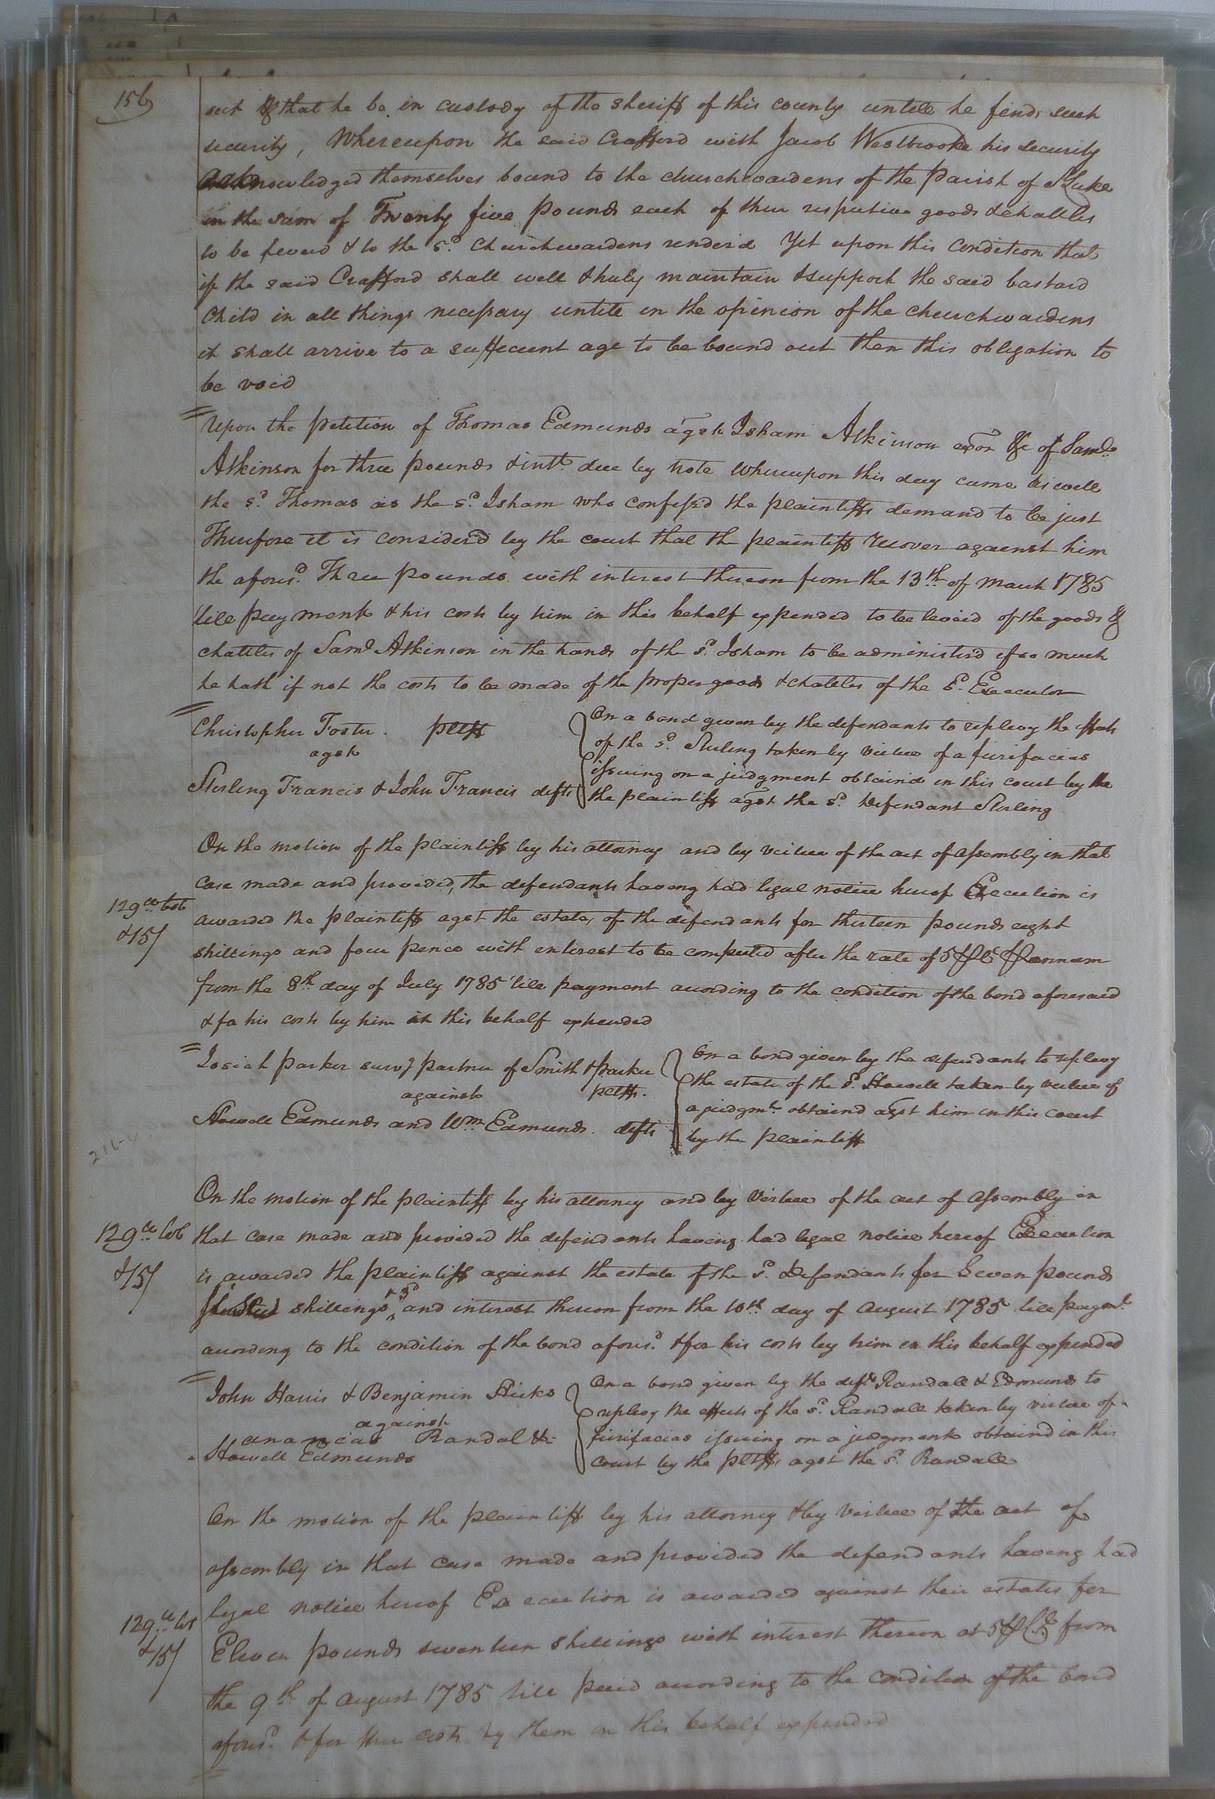 156
out & that he be in custody of the sheriff of this county untill he finds such
security, Whereupon the said Crafford with Jacob Westbrooke his security
acknowledged themselves bound to the churchwardens of the Parish of St Luke
in the sum of Twenty five pounds each of their respective goods & chattles
to be levied & to the sd. Churchwardens renderd Yet upon this Condition that
if the said Crafford shall well & truly maintain & support the said bastard
Child in all things necessary untill in the opinion of the churchwardens
it shall arrive to a sufficient age to be bound out then this obligation to
be void
Upon the petition of Thomas Edmunds agst Isham Atkinson exor &c of Saml.
Atkinson for three pounds & intt. due by note Whereupon this day came as well
the sd. Thomas as the sd. Isham who confess'd the plaintiffs demand to be just
Therefore it is considered by the court that the plaintiff recover against him
the aforesd. Three pounds with interest thereon from the 13th. of March 1785
till payment & his costs by him in this behalf expended to be levied of the goods &
chattles of Saml. Atkinson in the hands of the sd. Isham to be administerd if so much
he hath if not the costs to be made of the proper goods & chattles of the sd. Executor
Christopher Foster. pltff
agst
Sterling Francis & John Francis defts
On a bond given by the defendants to replevy the effects
of the sd. Sterling taken by virtue of a furifacias
issuing on a judgment obtaind in this court by the
the plaintiff agst the sd. Defendant Sterling
On the motion of the plaintiff by his attorney and by virtue of the act of Assembly in that
case made and provided, the defendants having had legal notice hereof Execution is
129 lb tob
& 15/
awarded the plaintiff agst the estates of the defendants for thirteen pounds eight
shillings and four pence with interest to be computed after the rate of 5 P Ct P annum
from the 8th day of July 1785 till payment according to the condition of the bond aforesaid
& for his costs by him in this behalf expended
Josiah Parker survg partner of Smith & Parker
against pltff.
Howell Edmunds and Wm. Edmunds defts
On a bond given by the defendants to replevy
the estate of the sd. Howell taken by virtue of
a judgmt. obtaind agst him in this court
by the plaintiff
On the motion of the plaintiff by his attorney and by virtue of the act of assembly in
129 lb tob
& 15/
that case made and provided the defendants having had legal notice hereof Execution
is awarded the plaintiff against the estate of the sd. Defendants for Seven pounds
shillings and interest thereon from the 10th. day of August 1785 till paymt.
according to the condition of the bond aforesd. & for his costs by him in this behalf expended
John Harris & Benjamin Hicks
against
ananias Randal &
Howell Edmunds
On a bond given by the defts. Randall & Edmunds to
replevy the effects of the sd. Randall taken by virtue of a
furifacias issuing on a judgment obtaind in this
court by the pltffs agst the sd. Randall
On the motion of the plaintiff by his attorney & by virtue of the act of
assembly in that case made and provided the defendants having had
legal notice hereof Execution is awarded against their estates for
129 lb tob
& 15/
Eleven pounds seventeen shillings with interest thereon at 5 P Ct. from
the 9th. of August 1785 till paid according to the condition of the bond
aforesd. & for their costs by them in this behalf expended